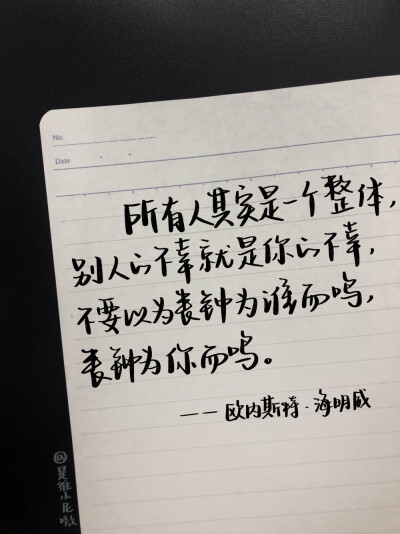 No.
Date
所有人其实是一个整体,
别人的不幸就是你的不幸,
不要以为丧钟为谁而鸣,
丧钟为你而鸣。
——欧内斯特·海明威
@是雅小尼嗷